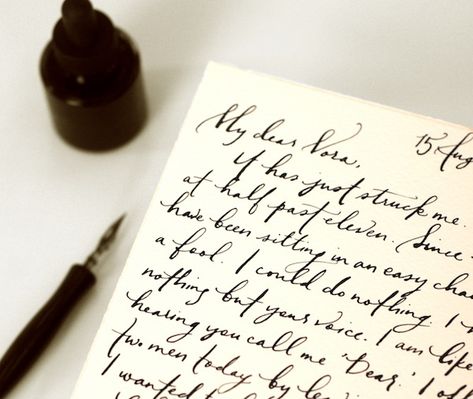 15 Aug
My dear Nora,
It has just struck me.
at half past eleven. Since
have been sitting in an easy cha
a fool. I could do nothing. I
nothing but your voice. I am like
hearing you call me 'Dear.' I off
two men today by
I wanted